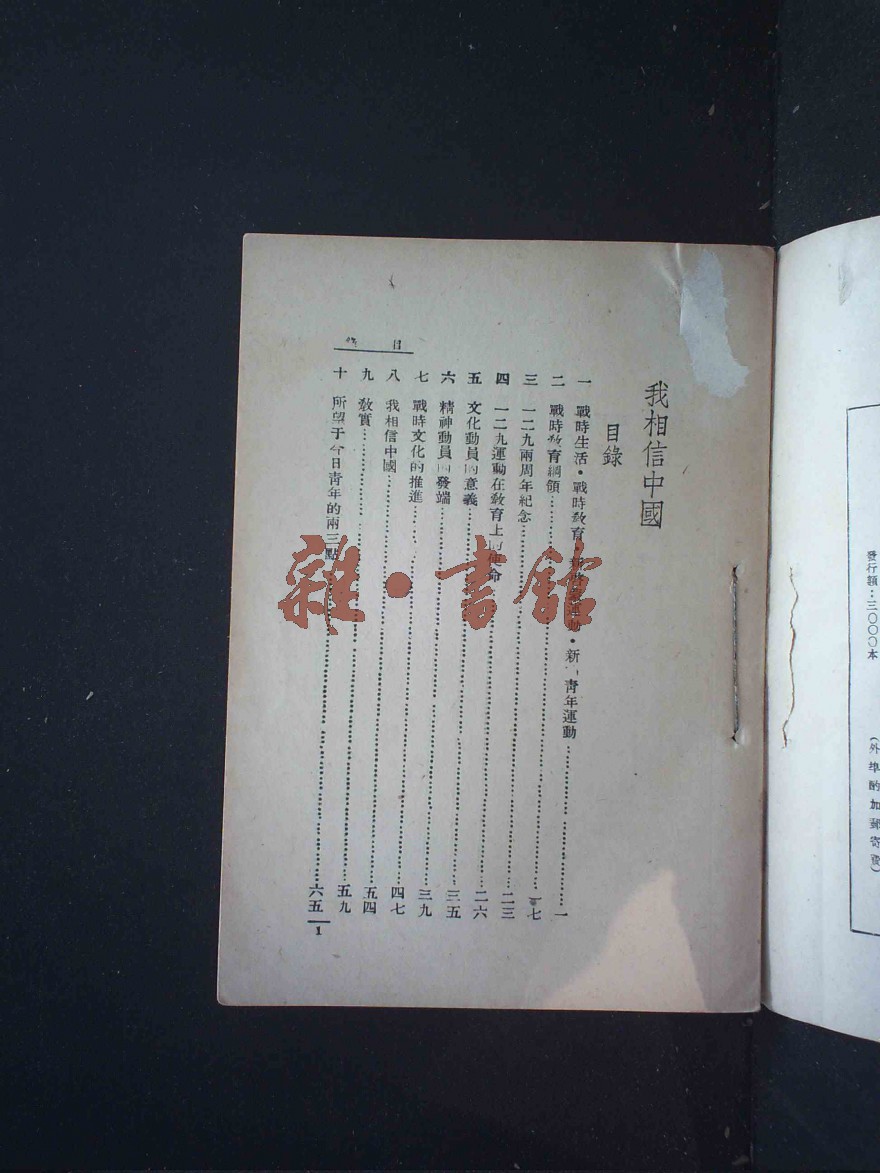 發行額：三〇〇〇本
（外埠酌加郵寄費）
我相信中國
目錄
一 戰時生活・戰時教育 運動・新 青年運動……一
二 戰時教育綱領……七
三 一二九兩周年紀念……二三
四 一二九運動在教育上的使命……二六
五 文化動員的意義……三五
六 精神動員的發端……三九
七 戰時文化的推進……四七
八 我相信中國……五四
九 教實……五九
十 所望于今日青年的兩三點……六五
目
1
雜・書館